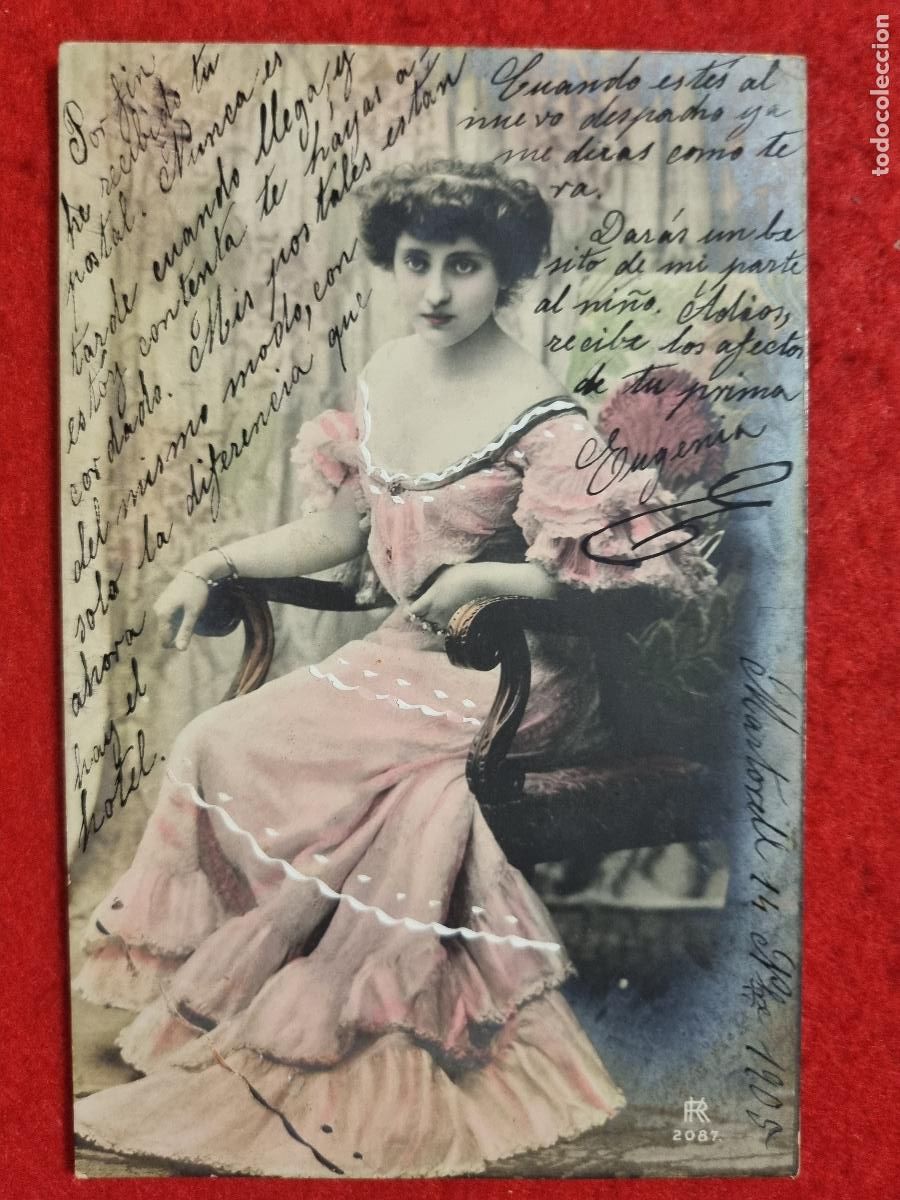 Por fin
he recibido tu
postal. Nunca es
tarde cuando llega, y
estoy contenta te hayas a-
cordado. Mis postales están
del mismo modo, con
solo la diferencia que
ahora
hay el
hotel.
Cuando estés al
nuevo despacho ya
me diras como te
va.
Darás un be
sito de mi parte
al niño. Adios,
recibe los afectos
de tu prima
Eugenia
Martorell 14 1905
RPH
2087
todocoleccion